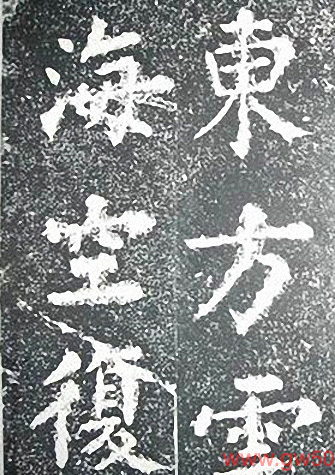 東方雲
海空復
www.gw59